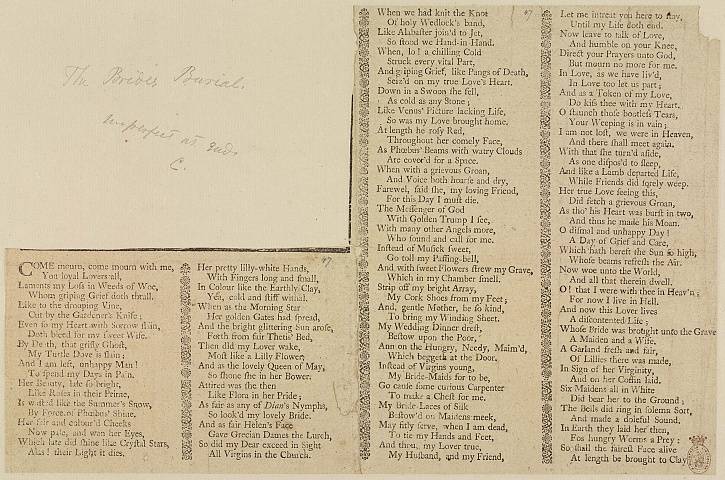 The Brides Burial.
imperfect at end.
C.
COME mourn, come mourn with me,
You loyal Lovers all,
Laments my Loss in Weeds of Woe,
Whom griping Grief doth thrall.
Like to the drooping Vine,
Cut by the Gardener's Knife;
Even so my Heart with Sorrow slain,
Doth bleed for my sweet Wife.
By Death, that grisly Ghost,
My Turtle Dove is slain;
And I am left, unhappy Man!
To spend my Days in Pain.
Her Beauty, late so bright,
Like Roses in their Prime,
Is wasted like the Summer's Snow,
By Force of Phœbus' Shine.
Her fair and colour'd Cheeks
Now pale, and wan her Eyes,
Which late did shine like Crystal Stars,
Alas! their Light it dies.
47
Her pretty lilly-white Hands,
With Fingers long and small,
In Colour like the Earthly Clay,
Yea, cold and stiff withal.
When as the Morning Star
Her golden Gates had spread,
And the bright glittering Sun arose,
Forth from fair Thetis' Bed,
Then did my Lover wake,
Most like a Lilly Flower,
And as the lovely Queen of May,
So shone she in her Bower.
Attired was she then
Like Flora in her Pride;
As fair as any of Dian's Nymphs,
So look'd my lovely Bride.
And as fair Helen's Face
Gave Grecian Dames the Lurch,
So did my Dear exceed in sight
All Virgins in the Church.
When we had knit the Knot
Of holy Wedlock's band,
Like Alabaster join'd to Jet,
So stood we Hand-in Hand.
When, lo! a chilling Cold
Struck every vital Part,
And griping Grief, like Pangs of Death,
Seiz'd on my true Love's Heart.
Down in a Swoon she fell,
As cold as any Stone;
Like Venus' Picture lacking Life,
So was my Love brought home.
At length he rosy Red,
Throughout her comely Face,
As Phœbus' Beams with watry Clouds
Are cover'd for a Space.
When with a grievous Groan,
And Voice both hoarse and dry,
Farewel, said she, my loving Friend,
For this Day I must die.
The Messenger of God
With Golden Trump I see,
With many other Angels more,
Who sound and call for me.
Instead of Musick sweet,
Go toll my Passing-bell,
And with sweet Flowers strew my Grave,
Which in my Chamber smell.
Strip off my bright Array,
My Cork Shoes from my Feet;
And, gentle Mother, be so kind,
To bring my Winding Sheet.
My Wedding Dinner drest,
Bestow upon the Poor,
And on the Hungry, Needy, Maim'd,
Which beggeth at the Door.
Instead of Virgins young,
My Bride-Maids for to be,
Go cause some curious Carpenter
To make a Chest for me.
My Bride-Laces of Silk
Bestow'd on Maidens meek,
May fitly serve, when I am dead,
To tie my Hands and Feet,
And thou, my Lover true,
My Husband, and my Friend,
47
Let me intreat you here to stay,
Until my Life doth end.
Now leave to talk of Love,
And humble on your Knee,
Direct your Prayers unto God,
But mourn no more for me.
In Love, as we have liv'd,
In Love too let us part;
And as a Token of my Love,
Do kiss thee with my Heart.
O staunch those bootless Tears,
Your Weeping is in vain;
I am not lost, we were in Heaven,
And there shall meet again.
With that she turn'd aside,
As one dispos'd to sleep,
And like a Lamb departed Life,
While Friends did sorely weep.
Her true Love seeing this,
Did fetch a grievous Groan,
As tho' his Heart was burst in two,
And thus he made his Moan.
O dismal and unhappy Day!
A Day of Grief and Care,
Which hath bereft the Sun so high,
Whose beams refresh the Air.
Now woe unto the World,
And all that therein dwell,
O! that I were with thee in Heav'n;
For now I live in Hell.
And now this Lover lives
A discontented Life;
Whose Bride was brought unto the Grave
A Maiden and a Wife.
A Garland fresh and fair,
Of Lillies there was made,
In Sign of her Virginity,
And on her Coffin laid.
Six Maidens all in White
Did bear her to the Ground;
The Bells did ring in solemn Sort,
And made a doleful Sound.
In Earth they laid her then,
For hungry Worms a Prey:
So shall the fairest Face alive
At length be brought to Clay